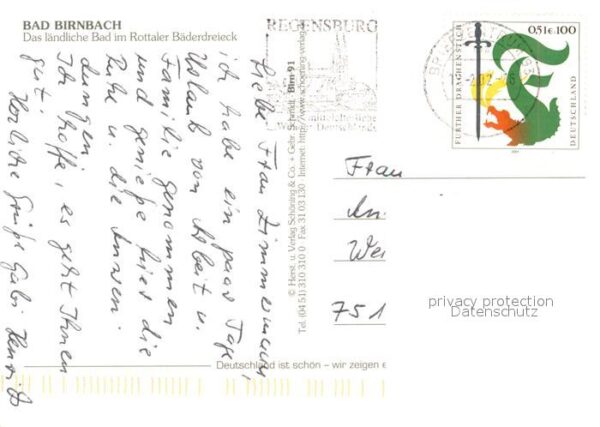 BAD BIRNBACH
Das ländliche Bad im Rottaler Bäderdreieck
Liebe Frau Zimmermann,
ich habe ein paar Tage
Urlaub von Arbeit u.
Familie genommen
und genieße hier die
Ruhe u. die
Ich hoffe, es geht Ihnen
gut
Herzliche Grüße Gabi
© Herst. u. Verlag Schöning & Co. + Gebr. Schmidt
Birn 91
Tel. (04 51) 310 310 0 Fax 31 03 130 Internet: http://www.schoening-verlag
REGENSBURG
Deutschlands
FURTHER DRACHENSTICH
0,51€ 100
DEUTSCHLAND
2001
Frau
An
We
751
privacy protection
Datenschutz
Deutschland ist schön – wir zeigen e